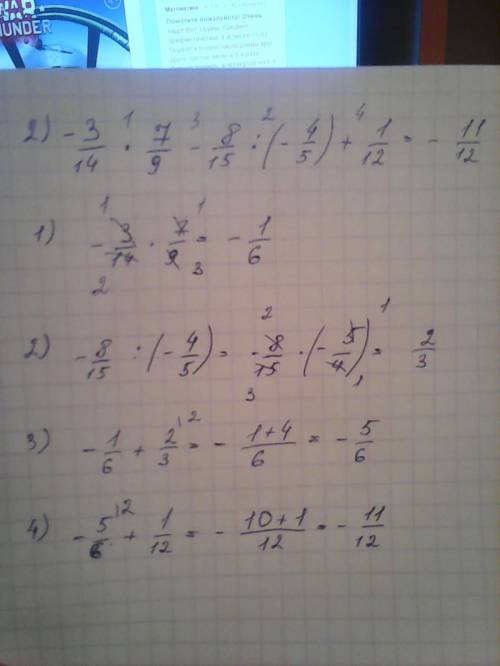 THUNDER
Математика
Помогите пожалуйста! Очень
2) -3/14 · 7/9 - 8/15 : (-4/5) + 1/12 = -11/12
1 3 2 4
1) -3/14 · 7/9 = -1/6
1 1 2 3
2) -8/15 : (-4/5) = -8/15 · (-5/4) = 2/3
2 1 3 1
3) -1/6 + 2/3 = -(1+4)/6 = -5/6
12
4) -5/6 + 1/12 = -(10+1)/12 = -11/12
12